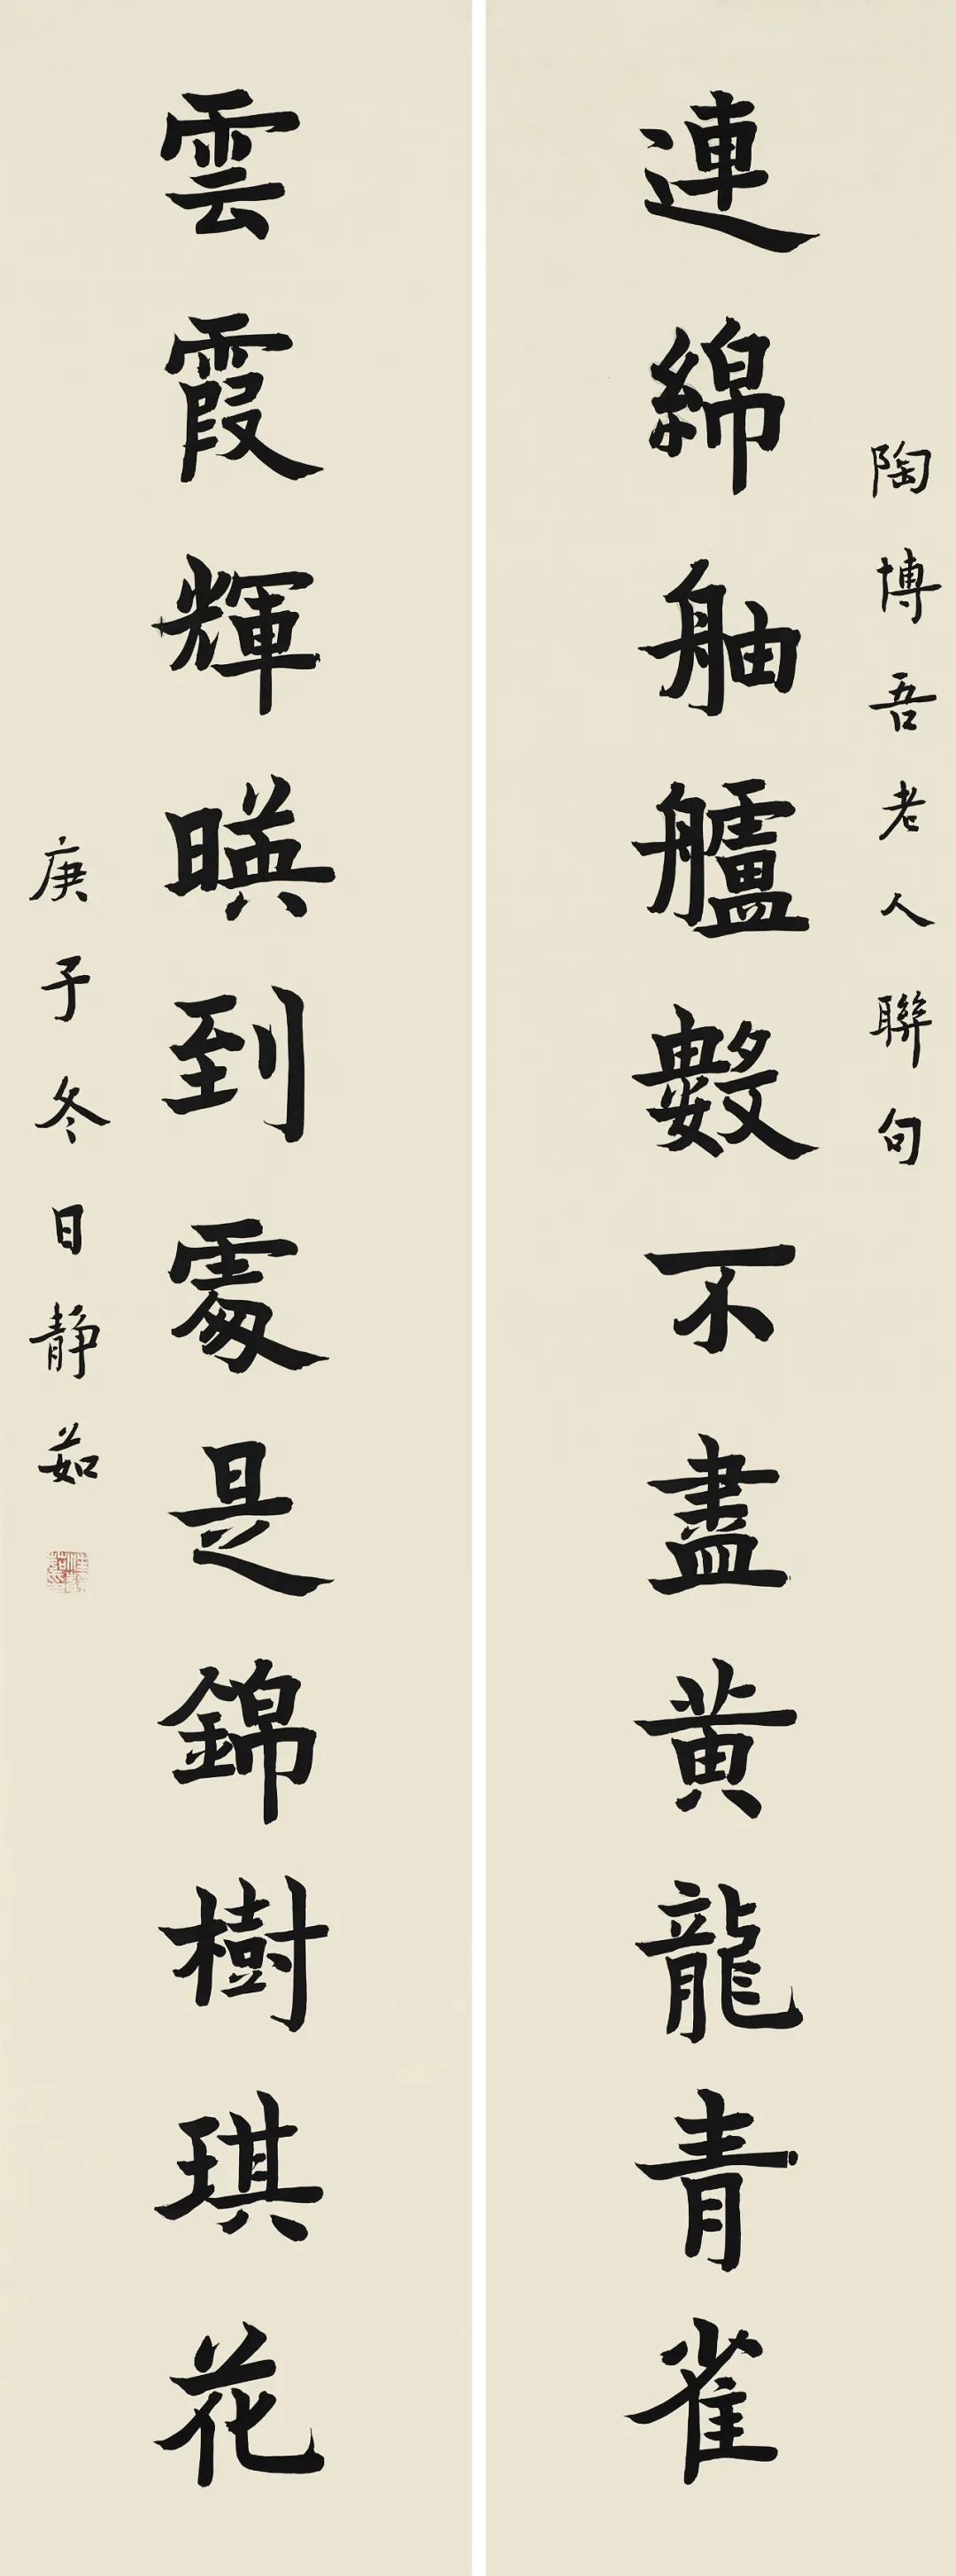 陶博吾老人聯句
連綿舳艫數不盡黃龍青雀
雲霞輝暎到處是錦樹琪花
庚子冬日靜茹